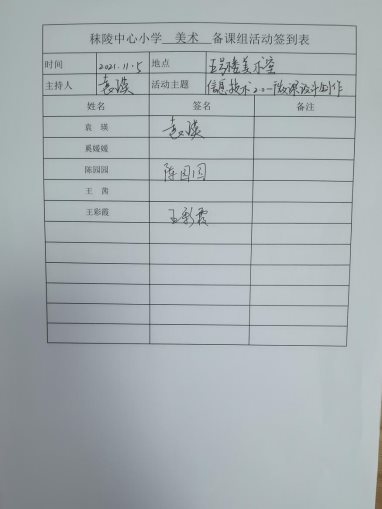 秣陵中心小学 美术 备课组活动签到表
时间 2021.11.5 地点 五号楼美术室
主持人 袁瑛 活动主题 信息技术2.0—微课设计制作
姓名 签名 备注
袁 瑛 袁瑛
奚媛媛
陈园园 陈园园
王 茜
王彩霞 王彩霞